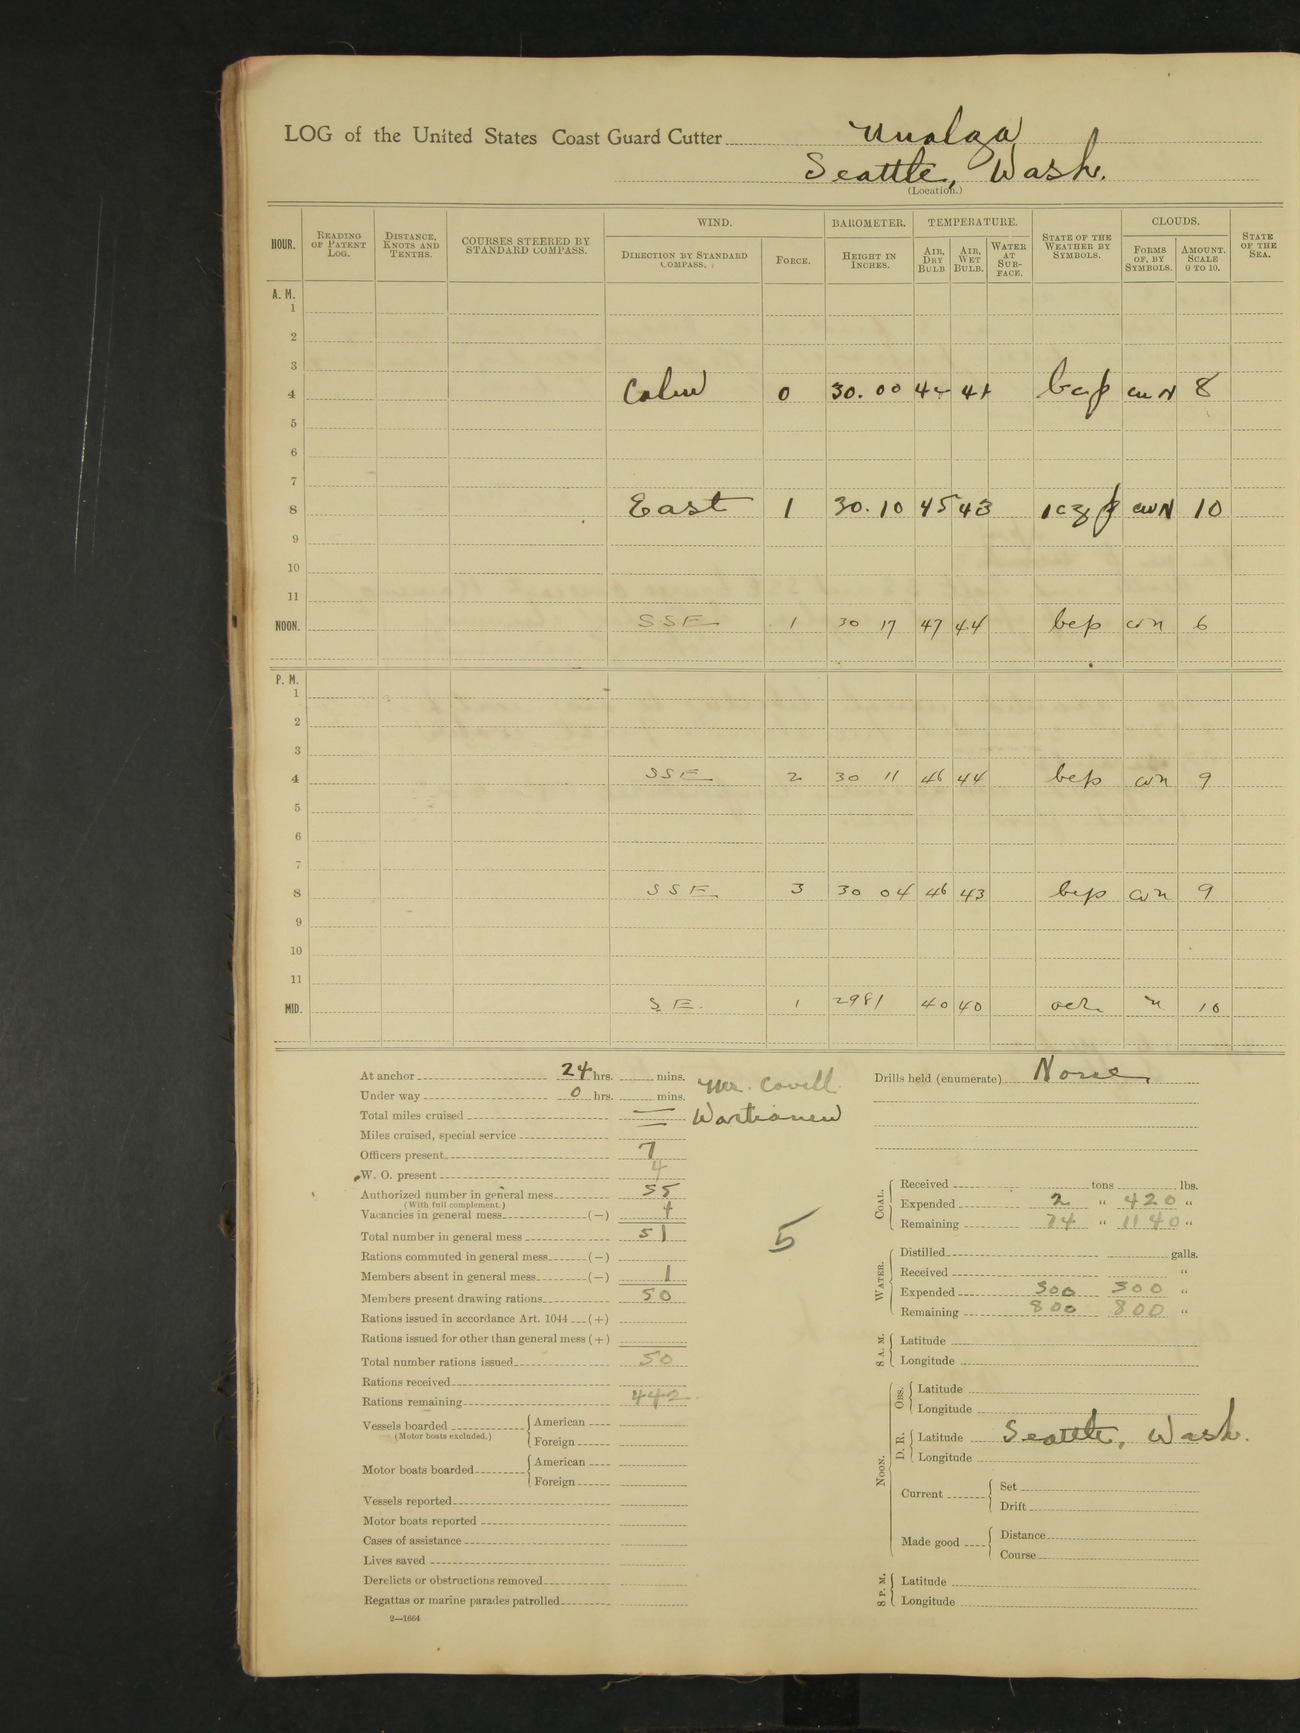 LOG of the United States Coast Guard Cutter Unalga
Seattle, Wash.
(Location.)
HOUR. READING OF PATENT LOG. DISTANCE, KNOTS AND TENTHS. COURSES STEERED BY STANDARD COMPASS. WIND. DIRECTION BY STANDARD COMPASS. FORCE. BAROMETER. HEIGHT IN INCHES. TEMPERATURE. AIR, DRY BULB AIR, WET BULB. WATER AT SURFACE. STATE OF THE WEATHER BY SYMBOLS. CLOUDS. FORMS OF, BY SYMBOLS. AMOUNT. SCALE 0 TO 10. STATE OF THE SEA.
A. M.
1
2
3
4 Calm 0 30.00 44 bcp cu N 8
5
6
7
8 East 1 30.10 45 43 cu N 10
9
10
11
NOON. SSE 1 30 17 47 44 bcp cu n 6
P. M.
1
2
3
4 SSE 2 30 11 46 44 bcp cu n 9
5
6
7
8 SSE 3 30 04 46 43 bcp cu n 9
9
10
11
MID. SE. 1 2981 40 40 n 10
At anchor 24 hrs. mins. Mr. Covell
Under way 0 hrs. mins.
Total miles cruised —
Miles cruised, special service —
Officers present 7
W. O. present 4
Authorized number in general mess 55
(With full complement.)
Vacancies in general mess (—) 4
Total number in general mess 51
Rations commuted in general mess (—)
Members absent in general mess (—) 1
Members present drawing rations 50
Rations issued in accordance Art. 1044 (+)
Rations issued for other than general mess (+)
Total number rations issued 50
Rations received
Rations remaining 442
Vessels boarded American
(Motor boats excluded.)
Foreign
Motor boats boarded American
Foreign
Vessels reported
Motor boats reported
Cases of assistance
Lives saved
Derelicts or obstructions removed
Regattas or marine parades patrolled
2—1664
5
Drills held (enumerate) None
COAL.
Received tons lbs.
Expended 2 " 420 "
Remaining 74 " 1140 "
WATER.
Distilled galls.
Received "
Expended 300 300 "
Remaining 800 800 "
8 A. M.
Latitude
Longitude
NOON.
OBS.
Latitude
Longitude
D. R.
Latitude Seattle, Wash.
Longitude
Current Set
Drift
Made good Distance
Course
8 P. M.
Latitude
Longitude